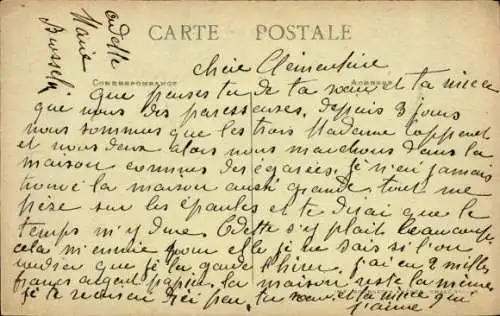 Odette
Marie
CARTE POSTALE
chère Clémentine
CORRESPONDANCE
que penses tu de ta sœur et ta nièce
que nous des paresseuses. depuis 3 jours
nous sommes que les trois Madame
et nous deux alors nous marchons dans la
maison commes des égarées. je n'ai jamais
trouvé la maison aussi grande tout me
pèze sur les épaules et te dirai que le
temps m'y dure. Odette s'y plait beaucoup
cela m'ennuie pour elle je ne sais si l'on
voudier que je la garde l'hiver. j'ai en 2 milles
francs argent papier. la maison reste la meme
je te reverrai d'ici peu. ta sœur et ta nièce qui
t'aime